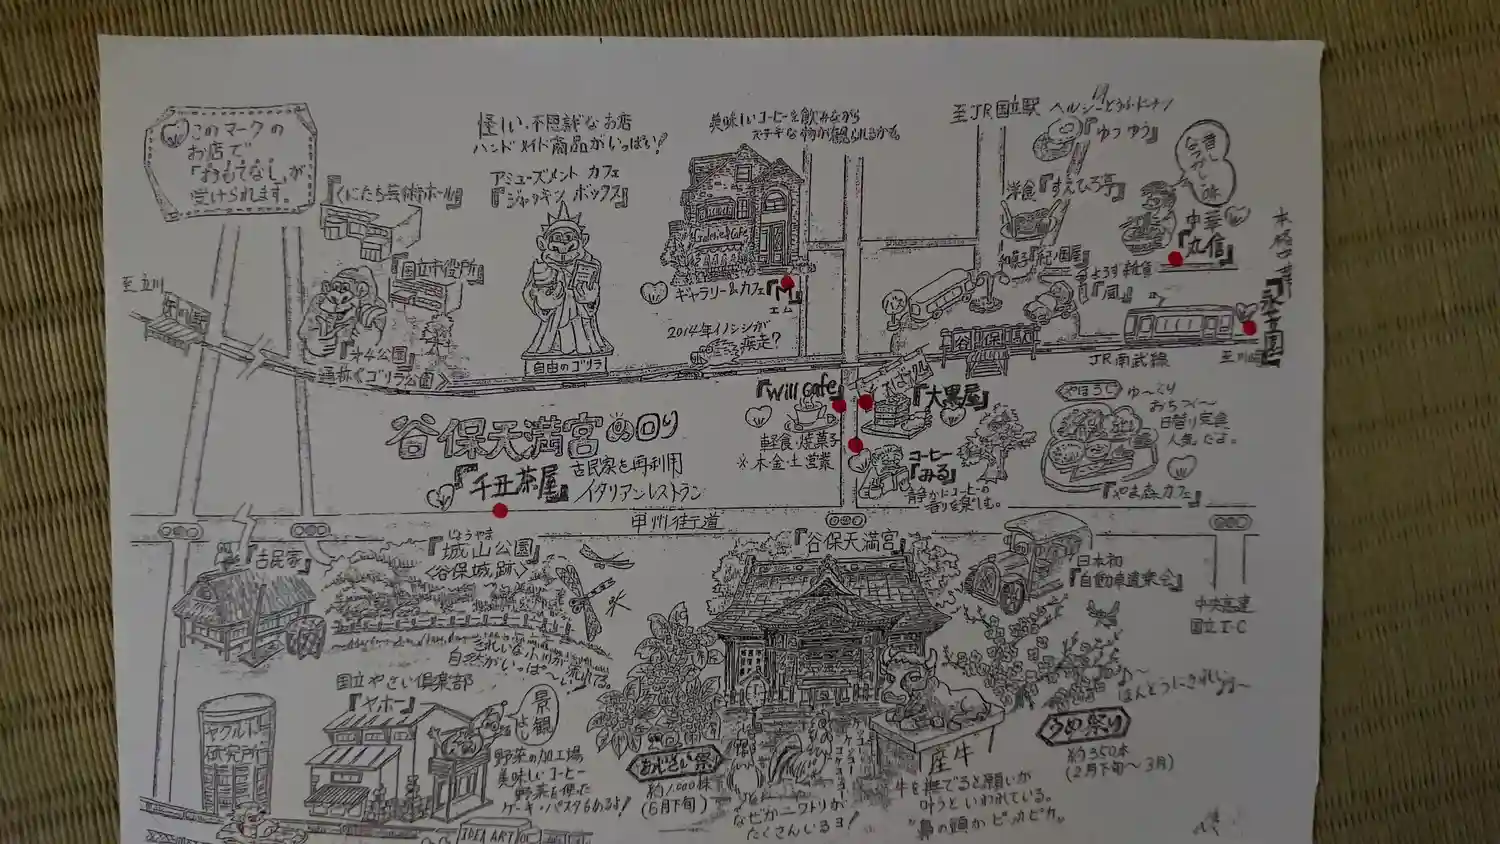 このマークの
お店で
「おもてなし」が
受けられます。
『くにたち芸術ホール』
『国立市役所』
至立川
『ネキ公園』
通称《ゴリラ公園》
怪しい、不思議なお店
ハンドメイド商品がいっぱい!
アミューズメント カフェ
『ジャッキン ボックス』
自由のゴリラ
美味しいコーヒーを飲みながら
ステキな物が観られるかも
ギャラリー&カフェ『M』
エム
2014年イノシシが
疾走?
至JR国立駅
ヘルシーとうふドーナツ
『ゆうゆう』
洋食『すえひろ亭』
昔
なつか
しい味
中華
『丸信』
和菓子『紀ノ国屋』
『風』
谷保駅
JR南武線
至川崎
谷保天満宮の回り
『千丑茶屋』
古民家を再利用
イタリアンレストラン
『will cafe』
軽食・焼菓子
※木・金・土営業
『大黒屋』
コーヒー
『みる』
静かにコーヒーの
香りを楽しむ。
やほろじ
ゆ〜くり
おちつく〜
日替り定食
人気だよ。
『やま森カフェ』
甲州街道
『古民家』
じょうやま
『城山公園』
〈谷保城跡〉
きれいな小川が流れてる。
自然がいっぱ〜い!
『谷保天満宮』
日本初
『自動車遠乗会』
中央高速
国立I・C
ヤクルト
研究所
国立やさい倶楽部
『ヤホー』
景観
よし
野菜の加工場
美味しいコーヒー
野菜を使った
ケーキ・パスタもあるよ!
IDEA ART
あじさい祭り
約1,000株
(6月下旬)
なぜかニワトリが
たくさんいるヨ!
座牛
牛を撫でると願いが
叶うといわれている。
"鼻の頭がピッカピカ"
ほんとうにきれい
うめ祭り
約350本
(2月下旬〜3月)